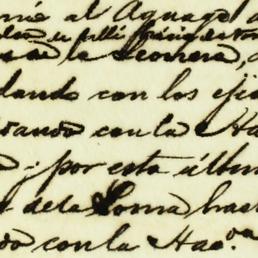 al Aguage
de la Leonera,
dando con los eji
tando con la Ha
por esta últim
de la Loma hast
do con la Hac.da